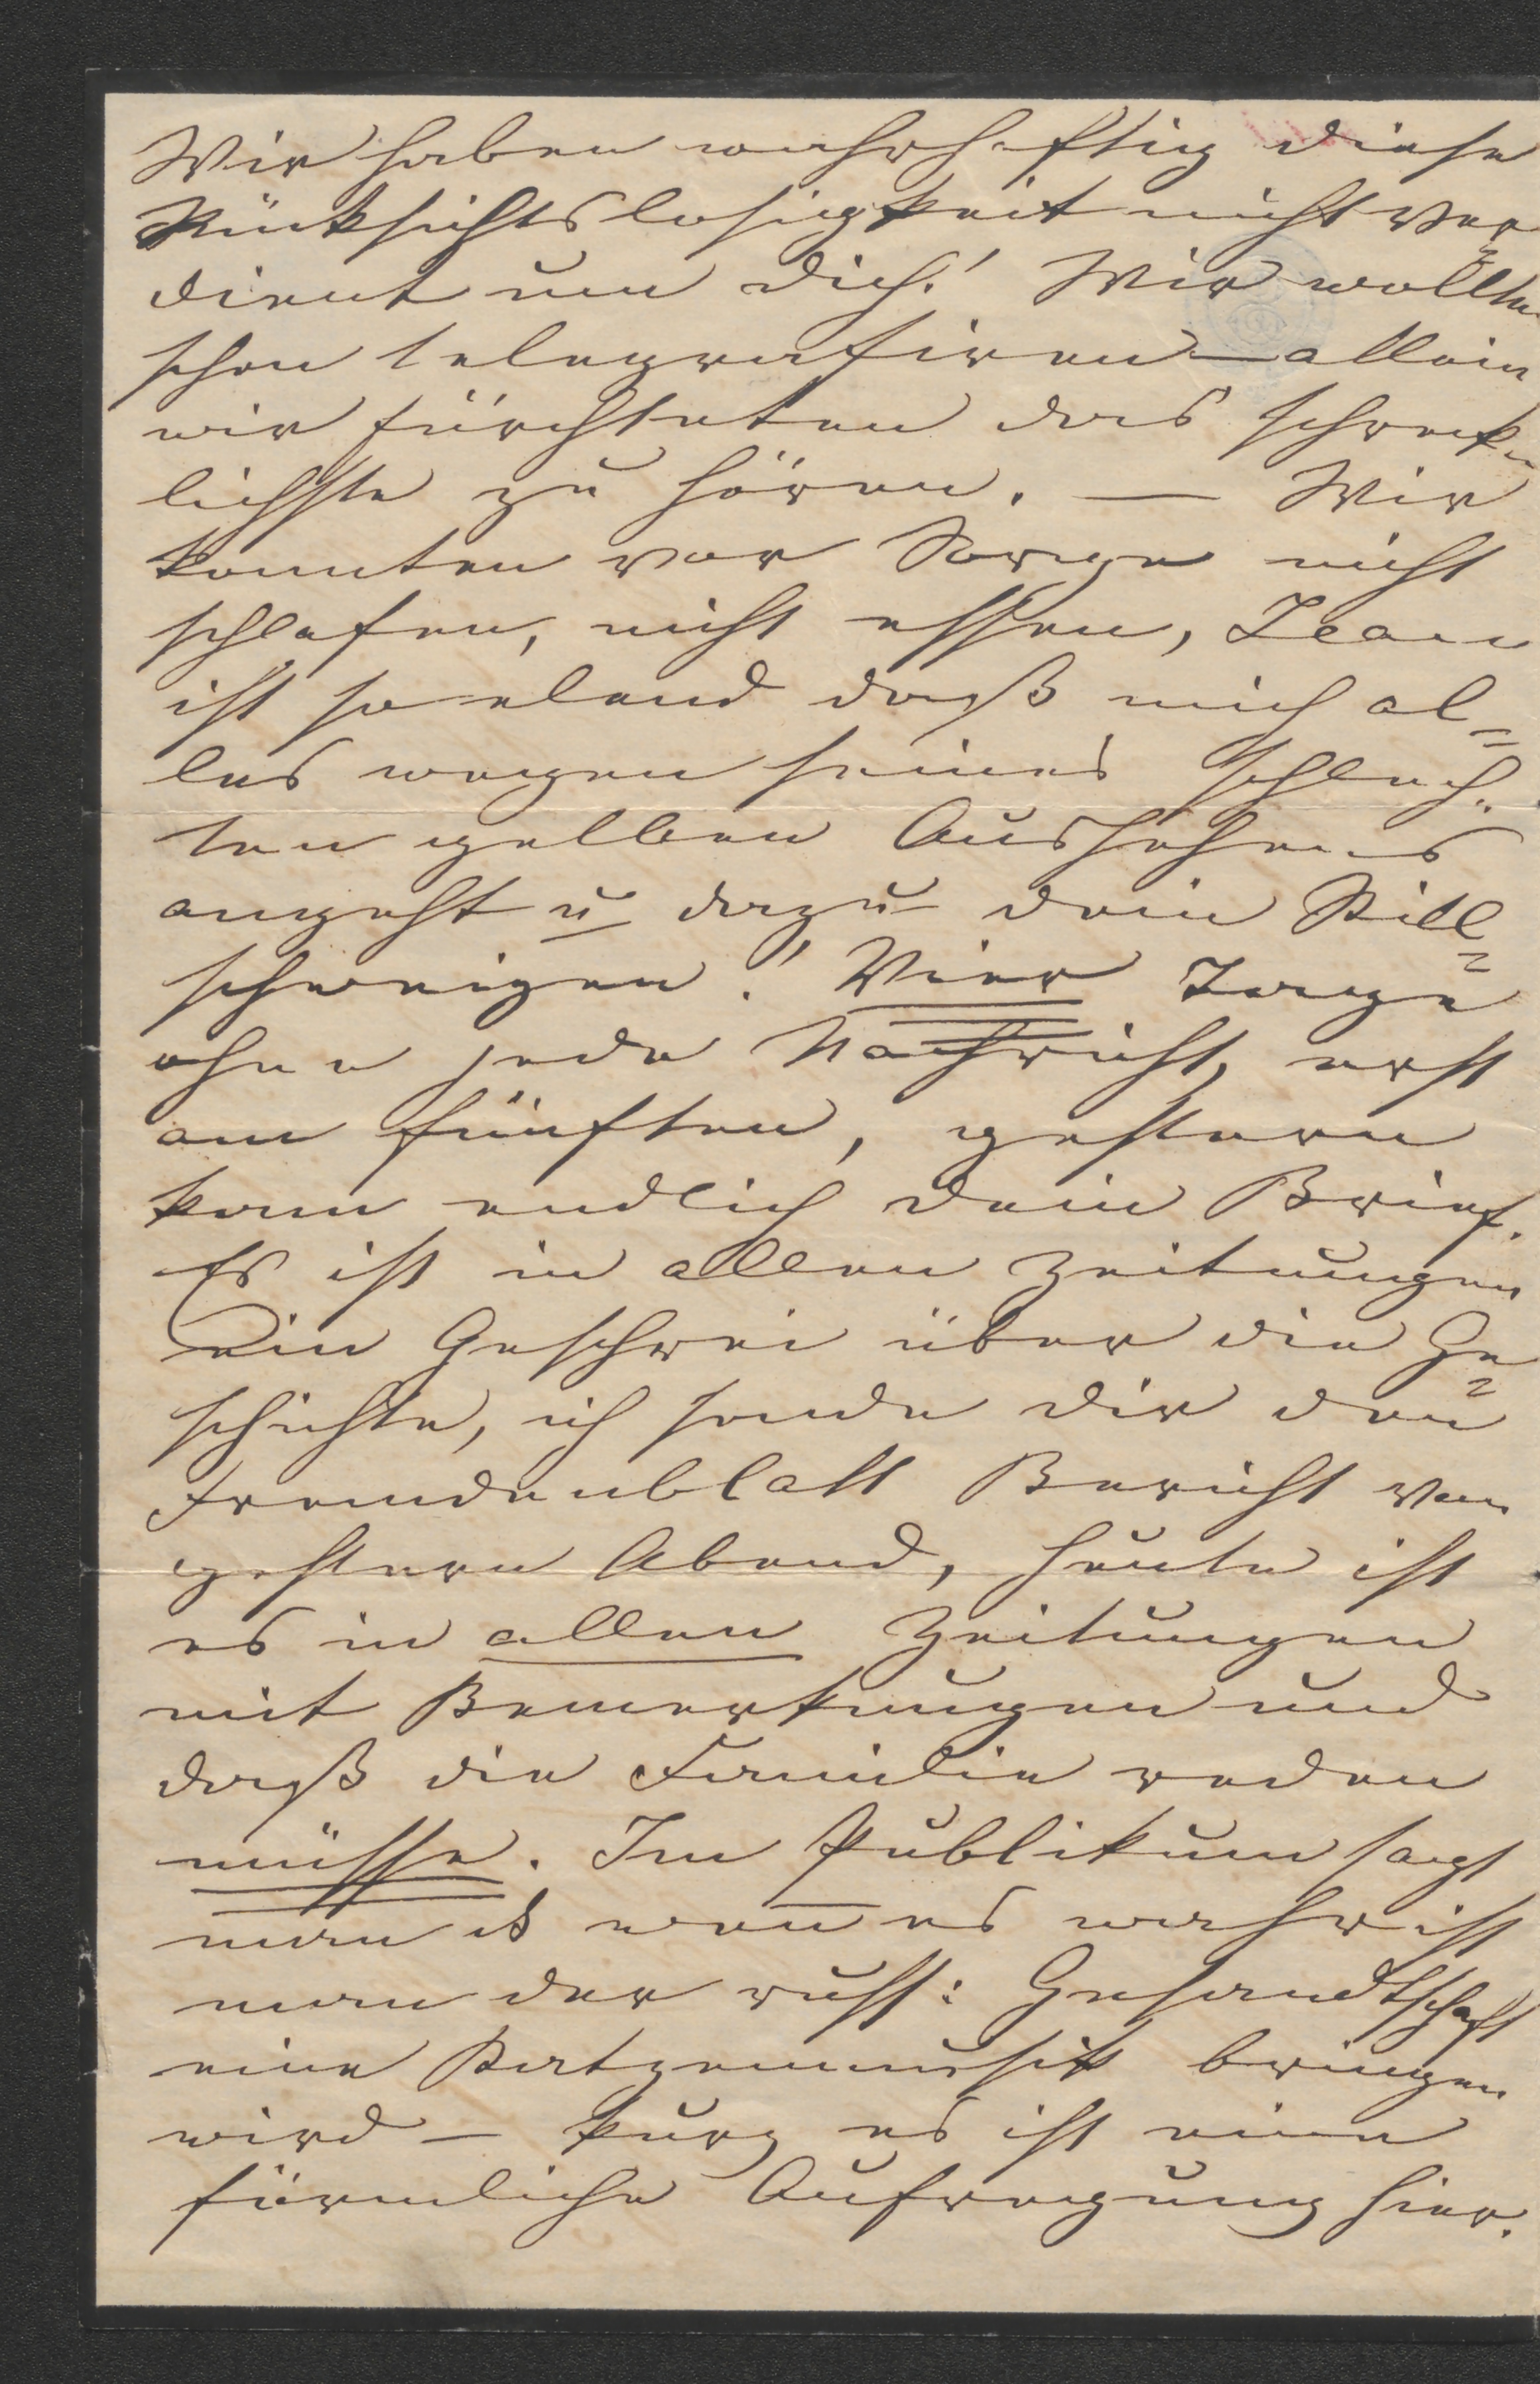 Wir haben wahrhaftig diese
Rücksichtslosigkeit nicht ver=
dient um dich! Wir wollten
schon telegrafiren – allein
wir fürchteten das schreck=
lichste zu hören. — Wir
konnten vor Sorge nicht
schlafen, nicht essen, Jean
ist so elend daß mich al=
les wegen seines schlech=
ten gelben Aussehens
angeht u dazu dein Still=
schweigen! Vier Tage
ohne jede Nachricht, erst
am fünften, gestern
kam endlich dein Brief.
Es ist in allen Zeitungen
ein Geschrei über die Ge=
schichte, ich sende dir den
Fremdenblatt Bericht von
gestern Abend, heute ist
es in allen Zeitungen
mit Bemerkungen und
daß die Familie reden
müsse. Im Publikum sagt
man wen̅ es wahr ist
man der russ: Gesandtschaft
eine Katzenmusik bringen
wird – kurz es ist eine
förmliche Aufregung hier.